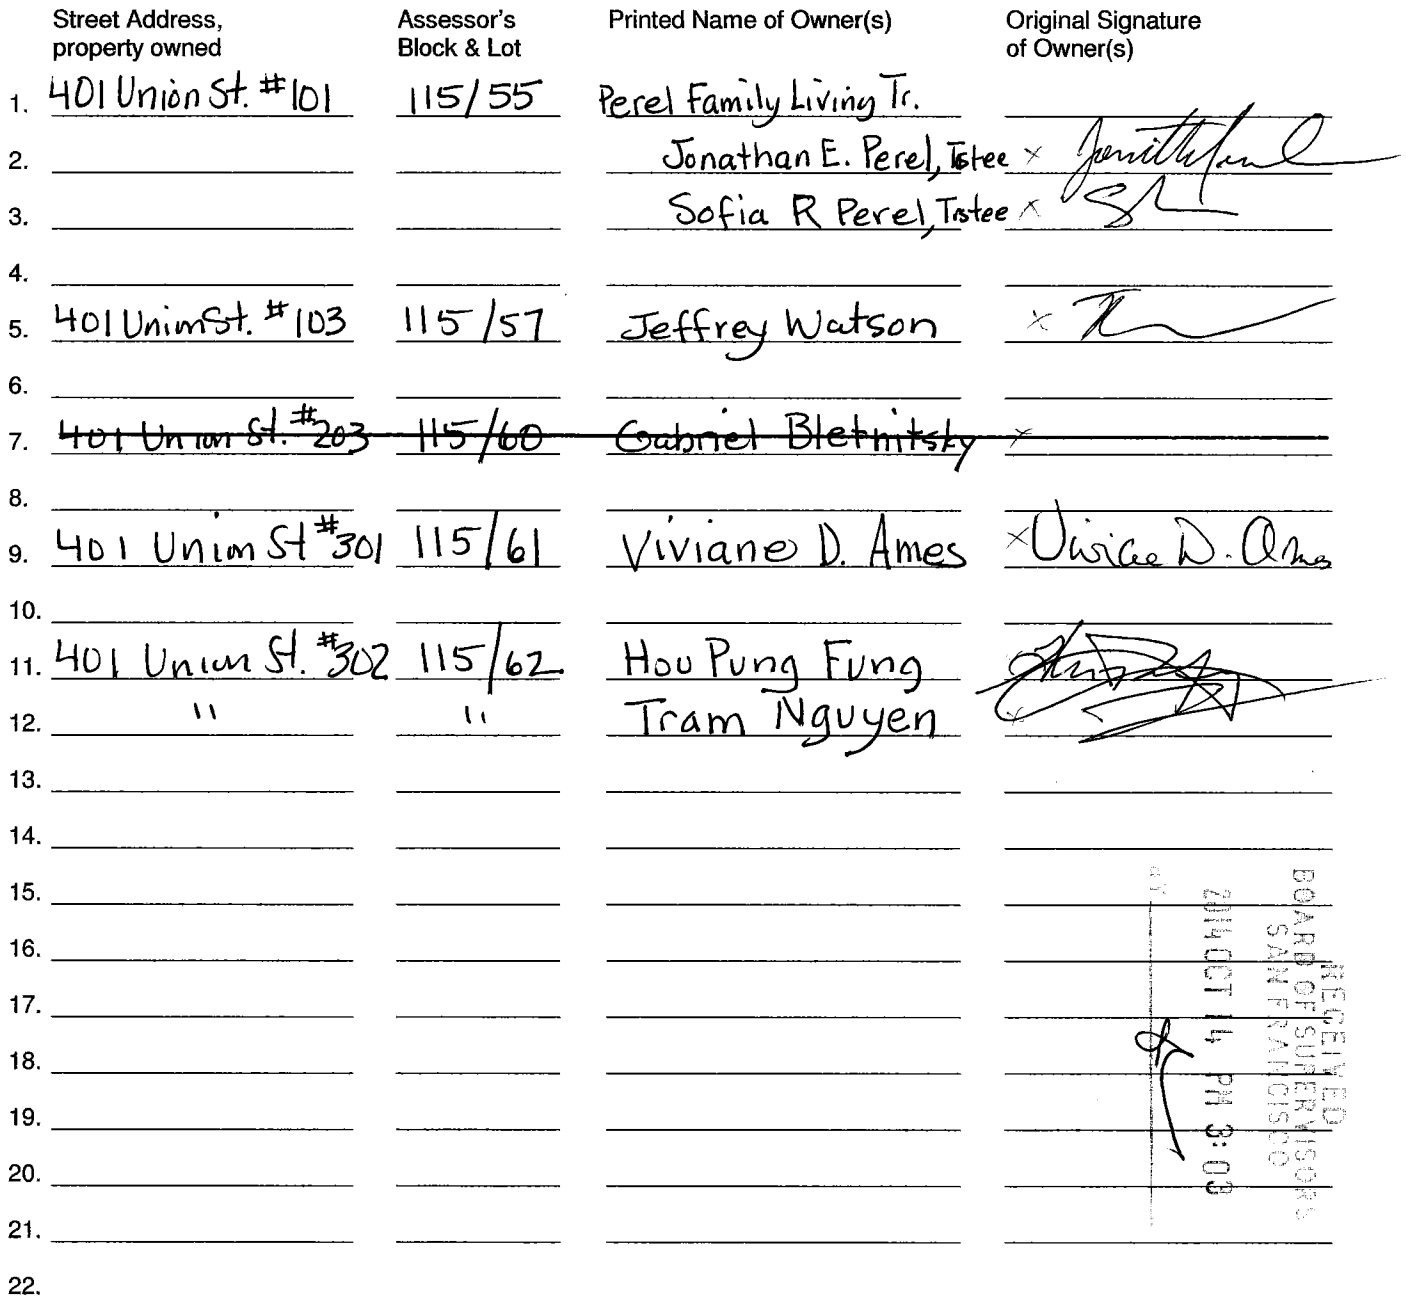 Street Address, property owned Assessor's Block & Lot Printed Name of Owner(s) Original Signature of Owner(s)
1. 401 Union St. #101 115/55 Perel Family Living Tr.
2. Jonathan E. Perel, Tstee x
3. Sofia R Perel, Trstee x
4.
5. 401 Union St. #103 115/57 Jeffrey Watson x
6.
7. 401 Union St. #203 115/60 Gabriel Bletnitsky x
8.
9. 401 Union St #301 115/61 Viviane D. Ames x Viviane D. Ames
10.
11. 401 Union St. #302 115/62 Hou Pung Fung
12. " " Tram Nguyen x
13.
14.
15.
16.
17.
18.
19.
20.
21.
22.
RECEIVED
BOARD OF SUPERVISORS
SAN FRANCISCO
2014 OCT 14 PM 3:03